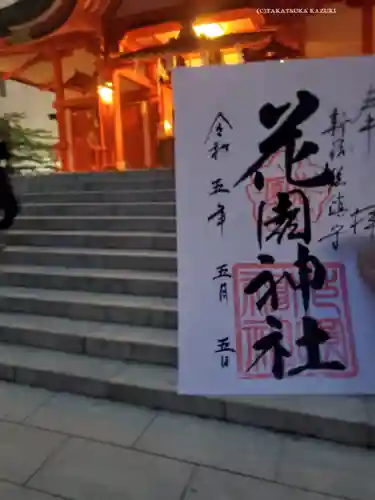 (C)TAKATSUKA KAZUKI
奉拝
新宿総鎮守
花園神社
令和五年五月五日